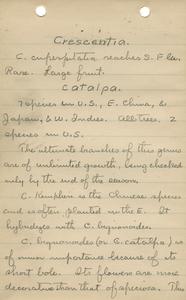 Crescentia.
C. cuperpitatia reaches S. Fla.
Rare. Large fruit.
Catalpa.
7 species in U.S., E. China, &
Japan, & W. Indies. All trees. 2
species in U.S.
The ultimate branches of this genus
are of unlimited growth, being checked
only by the end of the season.
C. Kempheri is the Chinese species
and is often planted in the E. It
hybridizes with C. bignonoides.
C. bignonoides (or C. catalpa) is
of minor importance because of its
short bole. Its flowers are more
decorative than that of speciosa. The